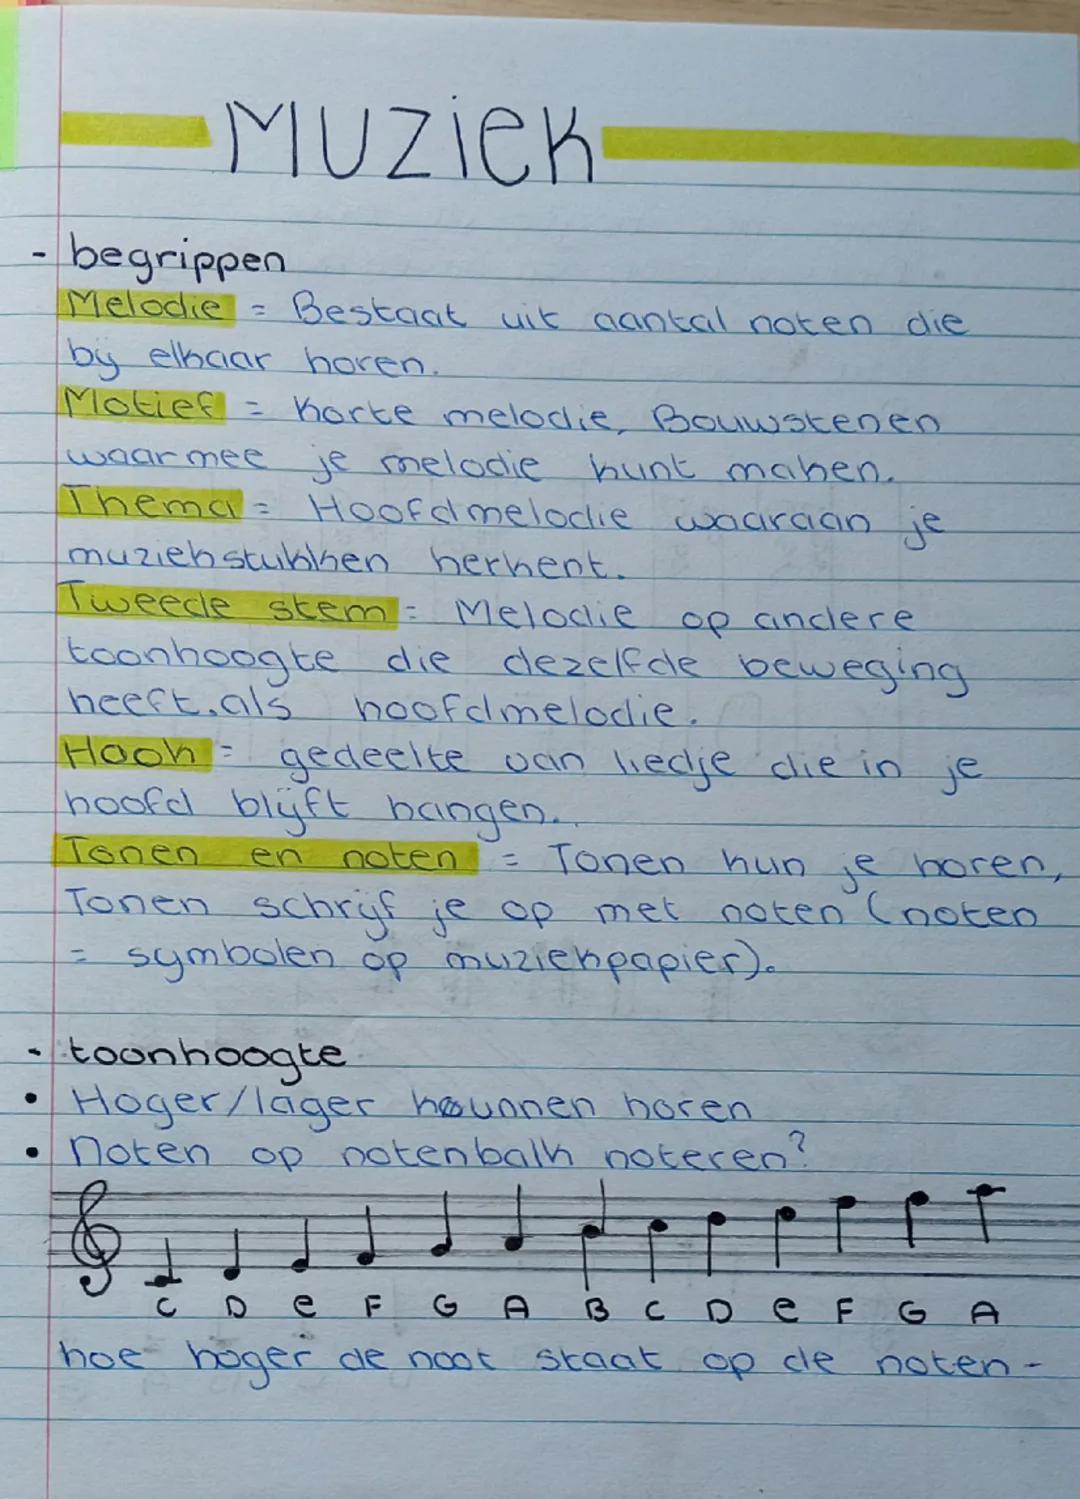 MUZIEK
- begrippen
Melodie = Bestaat uit aantal noten die
bij elkaar horen.
Motief = Korte melodie, Bouwstenen
waarmee je melodie kunt maken.
Thema = Hoofdmelodie waaraan je
muziekstukken herkent.
Tweede stem = Melodie op andere
toonhoogte die dezelfde beweging
heeft als hoofdmelodie.
Hook = gedeelte van liedje die in je
hoofd blijft hangen.
Tonen en noten = Tonen kun je horen,
Tonen schrijf je op met noten (noten
= symbolen op muziekpapier).
- toonhoogte
• Hoger/lager kunnen horen
• Noten op notenbalk noteren?
C D e F G A B C D e F G A
hoe hoger de noot staat op de noten-